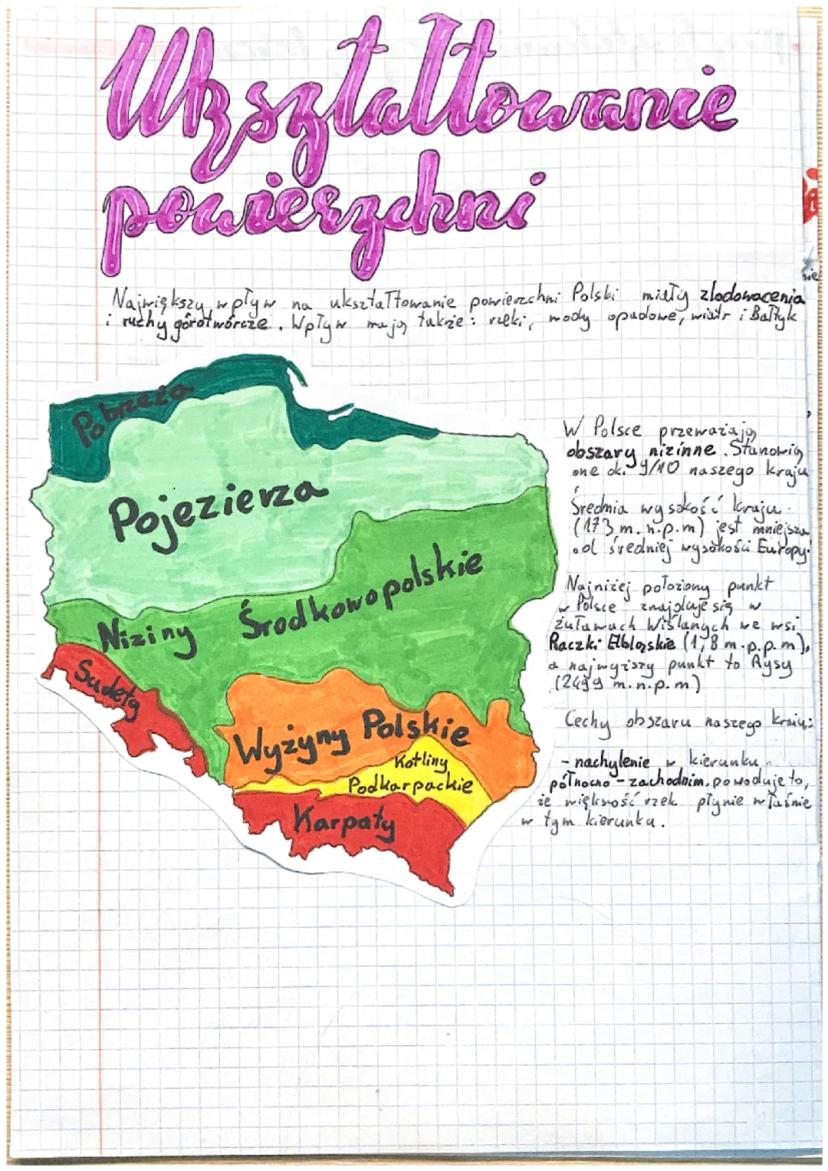 Ukształtowanie
powierzchni
Największy wpływ na ukształtowanie powierzchni Polski miały zlodowacenia
i ruchy górotwórcze. Wpływ mają także: rzeki, wody opadowe, wiatr i Bałtyk
Pobrzeża
Pojezierza
Niziny Środkowopolskie
Sudety
Wyżyny Polskie
Kotliny
Podkarpackie
Karpaty
W Polsce przeważają
obszary nizinne. Stanowią
one ok. 9/10 naszego kraju
Średnia wysokość kraju
(173 m.n.p.m) jest mniejsza
od średniej wysokości Europy.
Najniżej położony punkt
w Polsce znajduje się w
żuławach Wiślanych we wsi
Raczki Elbląskie (1,8 m.p.p.m),
a najwyższy punkt to Rysy
(2499 m.n.p.m)
Cechy obszaru naszego kraju:
- nachylenie w kierunku
północno-zachodnim. powoduje to,
że większość rzek płynie właśnie
w tym kierunku.